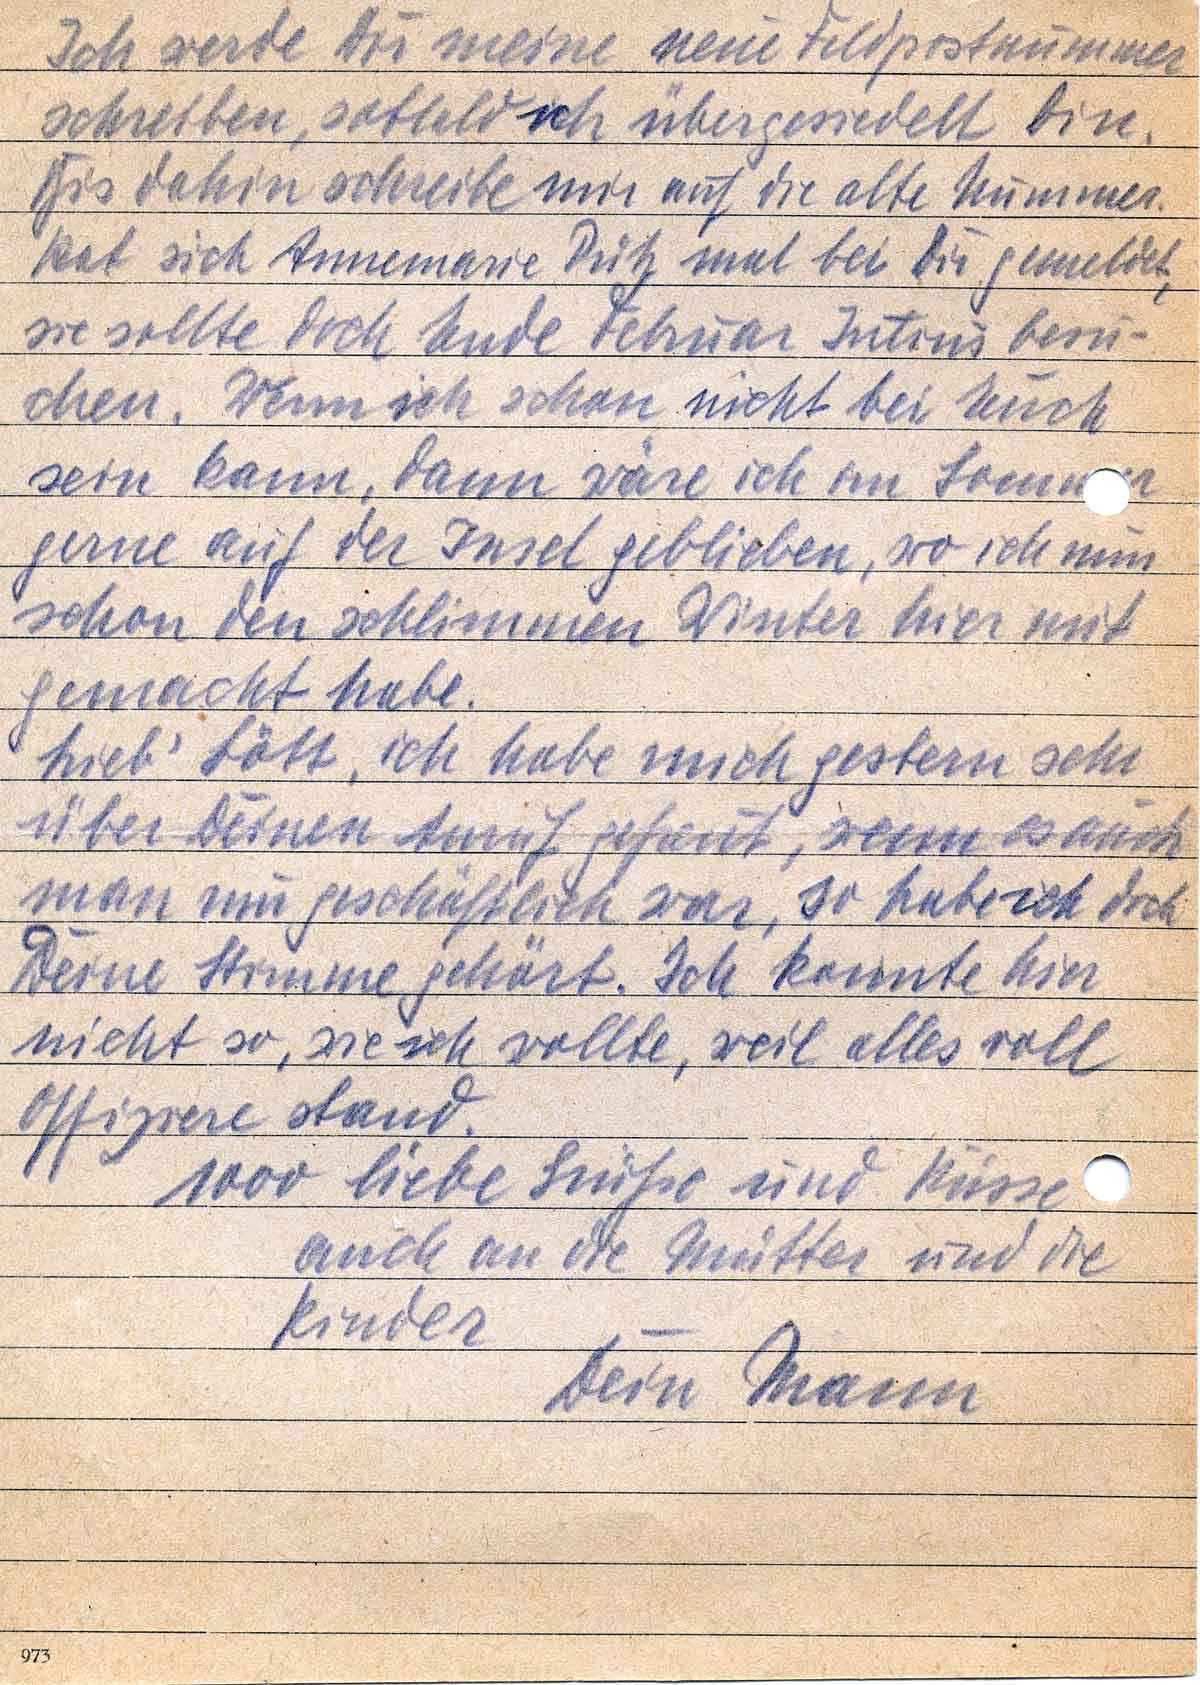 Ich werde Dir meine neue Feldpostnummer
schreiben, sobald ich übergesiedelt bin.
Bis dahin schreibe mir auf die alte Nummer.
Hat sich Annemarie mal bei Dir gemeldet,
sie sollte doch Ende Februar besu-
chen. Wenn ich schon nicht bei Euch
sein kann, dann wäre ich im Sommer
gerne auf der Insel geblieben, wo ich nun
schon den schlimmen Winter hier mit
gemacht habe.
Lieb' Lött, ich habe mich gestern sehr
über Deinen Anruf gefreut, wenn es auch
man nur geschäftlich war, so habe ich doch
Deine Stimme gehört. Ich konnte hier
nicht so, wie ich wollte, weil alles voll
Offiziere stand.
1000 liebe Grüße und Küsse
auch an die Mutter und die
Kinder
Dein Mann
973